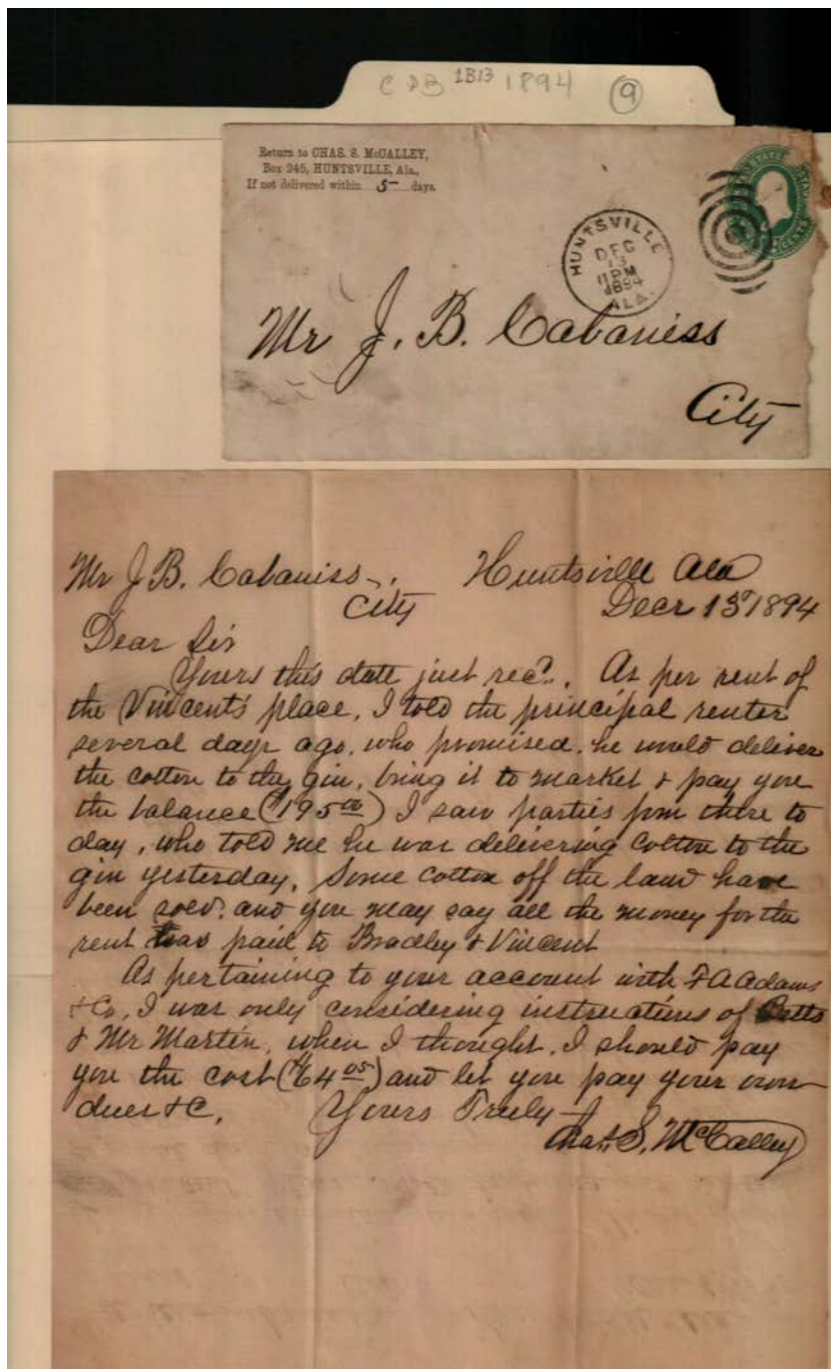 CDB 1B13 1894 9
Return to CHAS. S. McCALLEY,
Box 245, HUNTSVILLE, Ala.,
If not delivered within 5 days.
HUNTSVILLE
DEC
13
11PM
1894
ALA.
Mr J. B. Cabaniss
City
Mr J B. Cabaniss, Huntsville Ala
City Decr 13th 1894
Dear Sir
Yours this date just recd. As per rent of
the Vincents place, I told the principal renter
several days ago, who promised, he would deliver
the cotton to the gin, bring it to market & pay you
the balance ($195.00) I saw parties from there to
day, who told me he was delivering cotton to the
gin yesterday, Some cotton off the land have
been sold, and you may say all the money for the
rent was paid to Bradley & Vincent
As pertaining to your account with F A Adams
& Co, I was only considering instructions of
& Mr Martin, when I thought, I should pay
you the cost ($64.05) and let you pay your own
dues &C. Yours Truly
Chas. S. McCalley